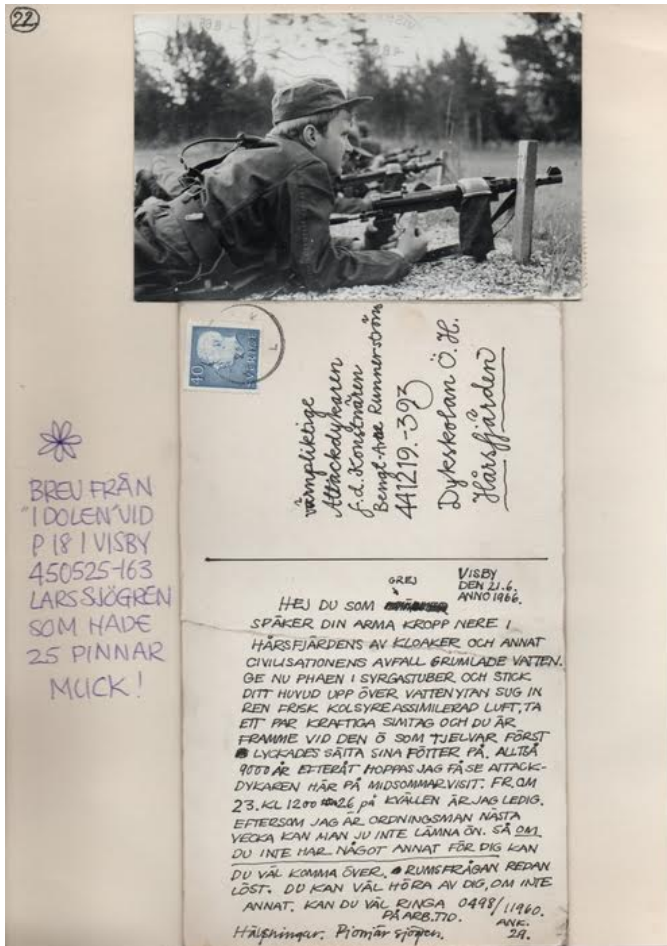 22
40
SVERIGE
värnpliktige
Attackdykaren
f.d. Konstnären
Bengt-Arne Runnerström
441219.-393
Dykskolan Ö.H.
Hårsfjärden
BREV FRÅN
"IDOLEN" VID
P 18 I VISBY
450525-163
LARS SJÖGREN
SOM HADE
25 PINNAR
MUCK!
VISBY
DEN 21.6.
ANNO 1966.
GREJ
HEJ DU SOM
SPÄKER DIN ARMA KROPP NERE I
HÅRSFJÄRDENS AV KLOAKER OCH ANNAT
CIVILISATIONENS AVFALL GRUMLADE VATTEN.
GE NU PHAEN I SYRGASTUBER OCH STICK
DITT HUVUD UPP ÖVER VATTENYTAN SUG IN
REN FRISK KOLSYREASSIMILERAD LUFT, TA
ETT PAR KRAFTIGA SIMTAG OCH DU ÄR
FRAMME VID DEN Ö SOM TJELVAR FÖRST
LYCKADES SÄTTA SINA FÖTTER PÅ. ALLTSÅ
9000 ÅR EFTERÅT HOPPAS JAG FÅ SE ATTACK-
DYKAREN HÄR PÅ MIDSOMMARVISIT. FR.OM
23. KL 1200 26 på KVÄLLEN ÄR JAG LEDIG.
EFTERSOM JAG ÄR ORDNINGSMAN NÄSTA
VECKA KAN MAN JU INTE LÄMNA ÖN. SÅ OM
DU INTE HAR NÅGOT ANNAT FÖR DIG KAN
DU VÄL KOMMA ÖVER. RUMSFRÅGAN REDAN
LÖST. DU KAN VÄL HÖRA AV DIG, OM INTE
ANNAT. KAN DU VÄL RINGA 0498/11960.
PÅ ARB.TID. ANK.
29.
Hälsningar. Pionjär Sjögren.